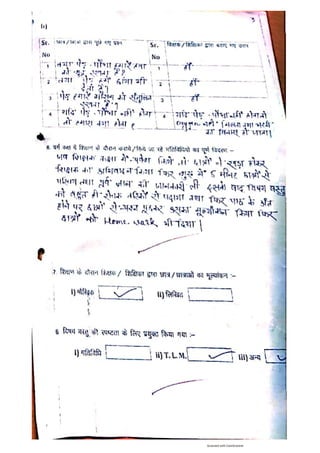 3
(b)
Sr. No छात्र/छात्रा द्वारा पूछे गए प्रश्न Sr. No शिक्षक / शिक्षिका द्वारा बताए गए उत्तर
1 क्या पेड़ - पौधा हमारे वातावरण को शुद्ध रखता है? 1 हाँ
2 क्या पेड़ हमें छाया भी देता है? 2 हाँ
3 पेड़ हमारे को संतुलित रखता है? 3 हाँ
4 यदि पेड़ - पौधा नहीं होगा तो हमारा क्या होगा ? 4 यदि पेड़ - पौधा नहीं होगा तो
6. वर्ग कक्ष में शिक्षण के दौरान कराये/किये जा रहे गतिविधियों का पूर्ण विवरण :-
छात्र शिक्षक कक्षा में प्रवेश किये तो छात्रों ने खड़ा होकर
शिक्षक का अभिवादन किया फिर शुरू में 5 मिनट छात्रों से
पूर्व ज्ञान की जानकारी ली इसके बाद विषय वस्तु
को बहुत ही रोचक तरीके से पढ़ाया तथा फिर पाठ के अंत
होने पर छात्रों से प्रश्न पूछकर उसका मूल्यांकन किया फिर
छात्रों को Home work भी दिया।
7. शिक्षण के दौरान शिक्षक / शिक्षिका द्वारा छात्र/छात्राओं का मूल्यांकन :-
i) मौखिक ✓ ii) लिखित
8. विषय वस्तु की स्पष्टता के लिए प्रयुक्त किया गया :-
i) गतिविधि ii) T. L. M. ✓ iii) अन्य ✓
Scanned with CamScanner